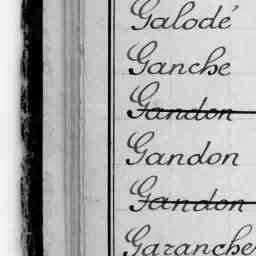 Galodé
Ganche
Gandon
Gandon
Gandon
Garanche